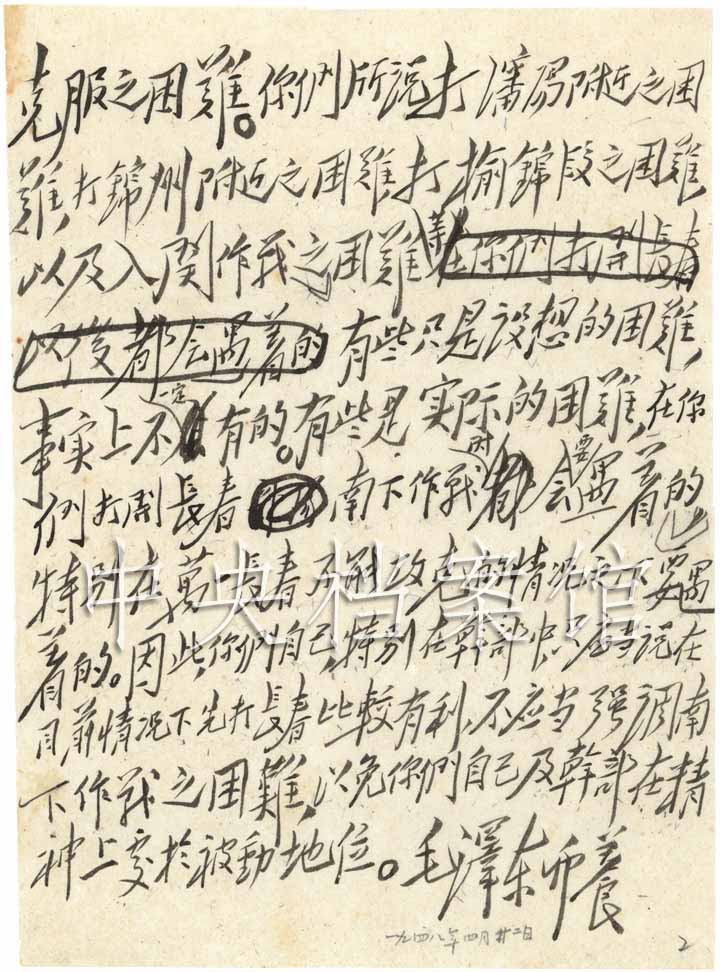 克服之困難。你們所說打瀋陽附近之困
難,打錦州附近之困難,打榆錦段之困難,
以及入関作戰之困難等在你們打開長春
以後都会遇着的有些只是設想的困難,
事实上不一定有的。有些是实际的困難,在你
們打開長春南下作戰时会要遇着的
特别在萬一長春不能攻克的情况下要遇
着的。因此,你們自己,特别在幹部中,只应当说在
目前情况下先打長春比較有利,不应当强調南
下作戰之困難,以免你們自己及幹部在精
神上处於被動地位。毛澤东卯養
一九四八年四月廿二日
2
中央档案馆